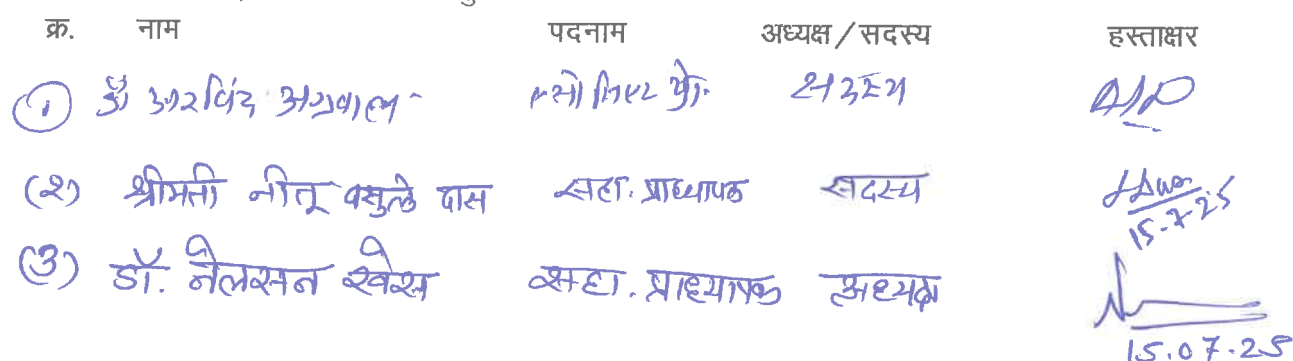 क्र. नाम पदनाम अध्यक्ष / सदस्य हस्ताक्षर
(1) डॉ अरविंद अग्रवाल एसोसिएट प्रो. सदस्य
(२) श्रीमती नीतू वसुले दास सहा. प्राध्यापक सदस्य 15-7-25
(3) डॉ. नेलसन खेस सहा. प्राध्यापक अध्यक्ष
15.07.25